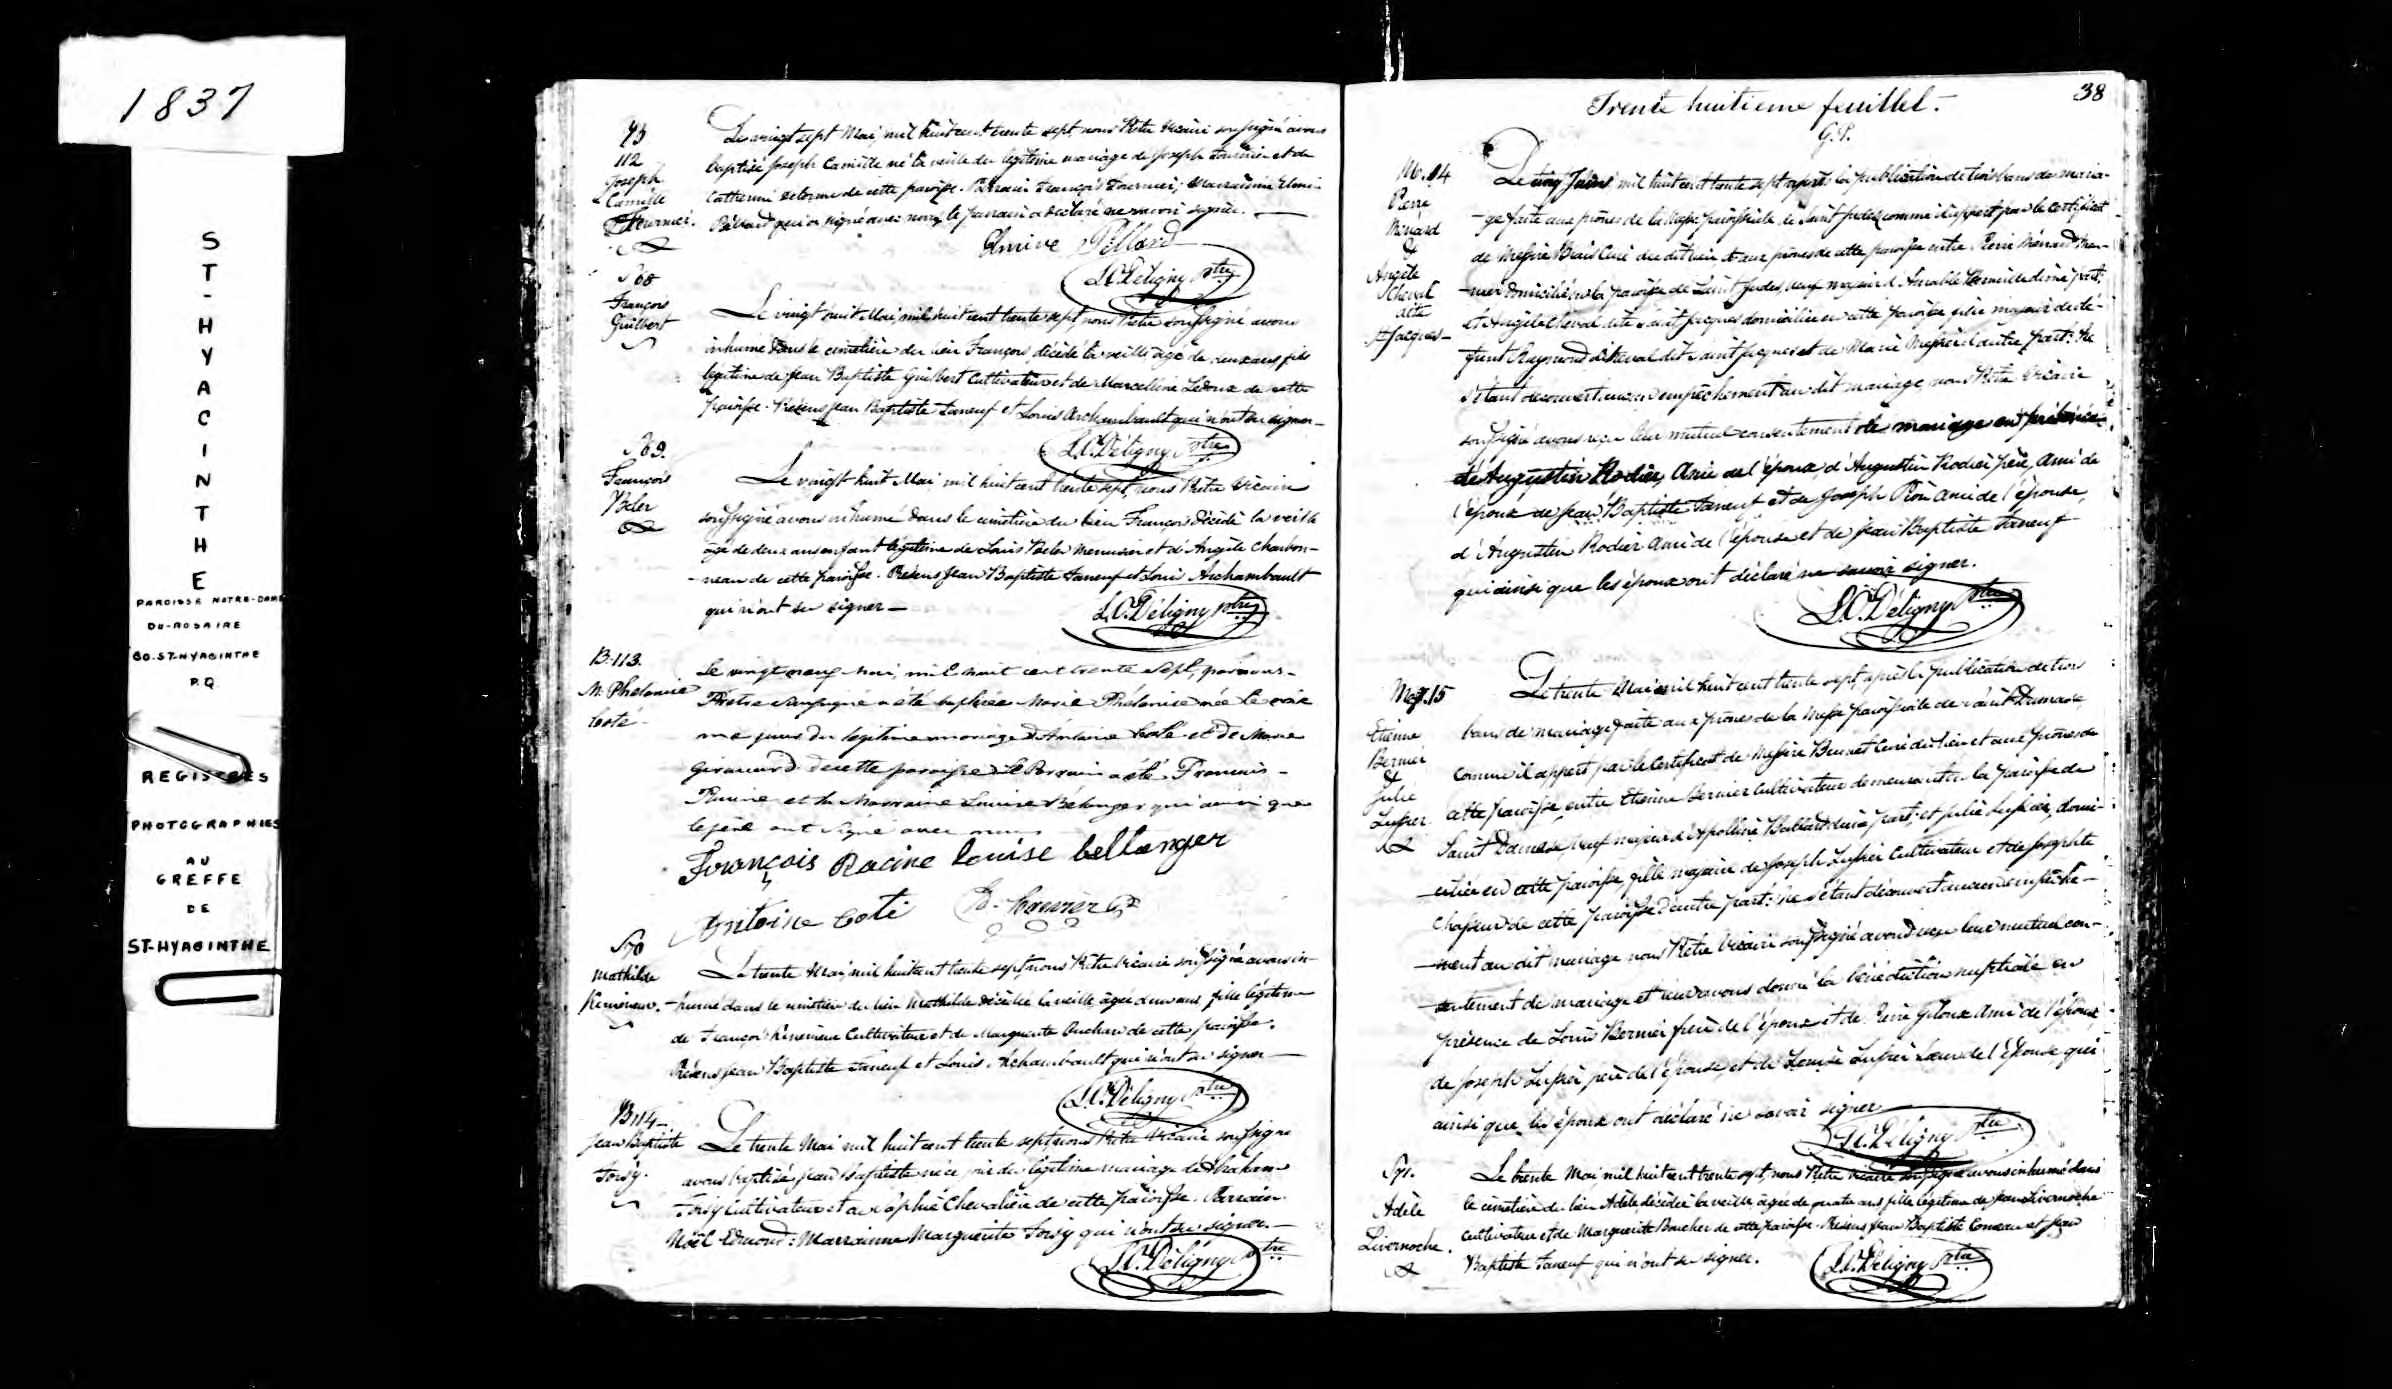 1837
ST-HYACINTHE
PAROISSE NOTRE-DAME
DU-ROSAIRE
CO. ST-HYACINTHE
P.Q.
REGISTRES
PHOTOGRAPHIES
AU
GREFFE
DE
ST-HYACINTHE
112
Joseph
Camille
Fournier.
Le vingt sept Mai, mil huit cent trente sept, nous Prêtre Vicaire soussigné avons
baptisé Joseph Camille né la veille du légitime mariage de Joseph Fournier et de
Catherine de cette paroisse. Parrain François Fournier; Marraine
qui a signé avec nous, le parrain a déclaré ne savoir signer.
L.O. Déligny ptre
S 68
François
Guilbert
Le vingt huit Mai, mil huit cent trente sept, nous Prêtre soussigné avons
inhumé dans le cimetière du lieu François, décédé la veille âgé de deux ans fils
légitime de Jean Baptiste Guilbert Cultivateur et de Marcelline Ledoux de cette
paroisse. Présens Jean Baptiste Faneuf et Louis Archambault qui n'ont su signer
L.O. Déligny ptre
S 69.
François
Le vingt huit Mai, mil huit cent trente sept, nous Prêtre Vicaire
soussigné avons inhumé dans le cimetière du lieu François décédé la veille
âgé de deux ans enfant légitime de Louis Menuisier et d'Angèle Charbon-
-neau de cette paroisse. Présens Jean Baptiste Faneuf et Louis Archambault
qui n'ont su signer —
L.O. Déligny ptre
B. 113.
M. Phelonise
Coté
Le vingt neuf Mai, mil huit cent trente sept, par nous
Prêtre soussigné a été baptisée Marie Phélonise née le
jour du légitime mariage d'Antoine Coté et de Marie
de cette paroisse. Le Parrain a été François
Racine et la Marraine Louise Bélanger qui ainsi que
le père ont signé avec nous
François Racine Louise bellanger
Antoine Coti
S 70
Mathilde
Le trente Mai, mil huit cent trente sept, nous Prêtre Vicaire soussigné avons in-
-humé dans le cimetière du lieu Mathilde décédée la veille âgée d'un ans fille légitime
de François Cultivateur et de Marguerite de cette paroisse.
Présens Jean Baptiste Faneuf et Louis Archambault qui n'ont su signer —
L.O. Déligny ptre
B 114
Jean Baptiste
Forsy.
Le trente Mai mil huit cent trente sept, nous Prêtre Vicaire soussigné
avons baptisé Jean Baptiste né ce jour du légitime mariage d'Abraham
Forsy Cultivateur et de Sophie Chevalier de cette paroisse. Parrain
Noël Edmond: Marrainne Marguerite Forsy qui n'ont su signer. —
L.O. Déligny ptre
38
Trente huitieme feuillet.
G.P.
M. 14
Pierre
Ménard
&
Angèle
Cheval
dite
St Jacques
mil huit cent trente sept après la publication de trois bans de maria-
-ge faite aux prônes de la Messe paroissiale de Saint Judes comme il appert par le certificat
de Messire Curé du dit lieu et aux prônes de cette paroisse entre Pierre Ménard
domicilié en la paroisse de Saint Judes, veuf majeur d'Amable d'une part:
et Angèle Cheval dite Saint Jacques domiciliée en cette paroisse fille majeure de dé-
-funt Raymond Cheval dit Saint Jacques et de Marie d'autre part: Ne
s'étant découvert aucun empêchement au dit mariage nous Prêtre Vicaire
soussigné avons reçu leur mutuel consentement de mariage en présence
de Augustin Rodier, Ami de l'époux, d'Augustin Rodier père, Ami de
l'époux de Jean Baptiste Faneuf et de Joseph ami de l'épouse,
d'Augustin Rodier ami de l'épouse et de Jean Baptiste Faneuf
qui ainsi que les époux ont déclaré ne savoir signer.
L.O. Déligny ptre
M. 15
Etienne
Bernier
&
Julie
Lussier
Le trente Mai mil huit cent trente sept, après la publication de trois
bans de mariage faite aux prônes de la Messe paroissiale de Saint Damase
comme il appert par le certificat de Messire Curé du lieu et aux prônes de
cette paroisse, entre Etienne Bernier Cultivateur demeurant en la paroisse de
Saint Damase, veuf majeur d'Apolline d'une part; et Julie Lussier, domi-
-ciliée en cette paroisse, fille majeure de Joseph Lussier Cultivateur et de Josephte
de cette paroisse d'autre part: Ne s'étant découvert aucun empêche-
-ment au dit mariage nous Prêtre Vicaire soussigné avons reçu leur mutuel con-
-sentement de mariage et leur avons donné la bénédiction nuptiale en
présence de Louis Bernier frère de l'époux et de Pierre Ami de l'époux,
de Joseph Lussier père de l'épouse, et de Louise Lussier soeur de l'épouse qui
ainsi que les époux ont déclaré ne savoir signer
L.O. Déligny ptre
S 71.
Adèle
Livernoche.
Le trente Mai, mil huit cent trente sept, nous Prêtre Vicaire soussigné avons inhumé dans
le cimetière du lieu Adèle, décédée la veille, âgée de quatre ans fille légitime de Jean Livernoche
Cultivateur et de Marguerite Boucher de cette paroisse. Présens Jean Baptiste Comeau et Jean
Baptiste Faneuf qui n'ont su signer.
L.O. Déligny ptre